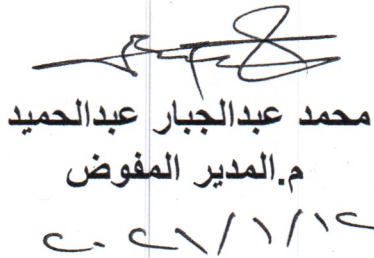 محمد عبدالجبار عبدالحميد
م.المدير المفوض
٢٠٢١/١/١٢